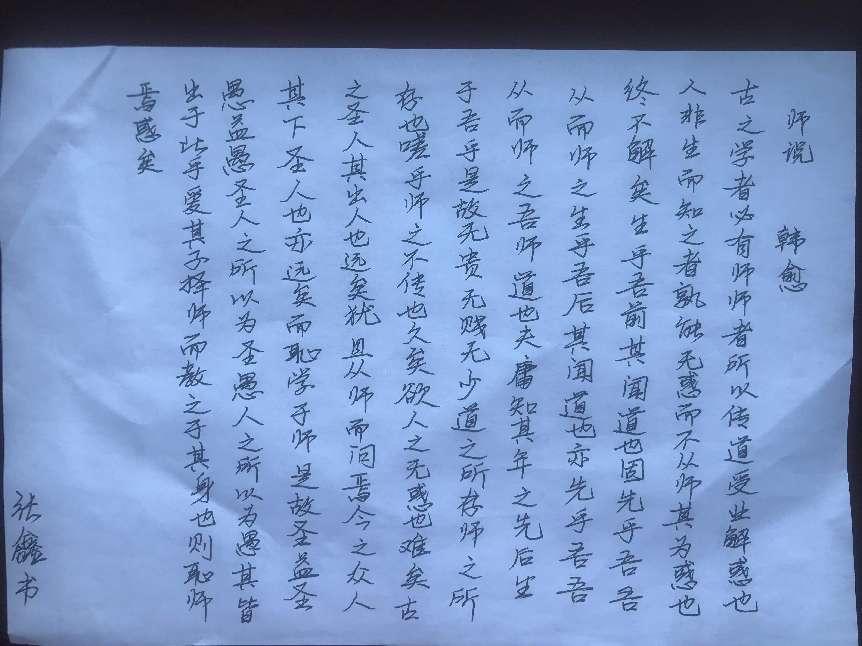 师说 韩愈
古之学者必有师师者所以传道受业解惑也
人非生而知之者孰能无惑而不从师其为惑也
终不解矣生乎吾前其闻道也固先乎吾吾
从而师之生乎吾后其闻道也亦先乎吾吾
从而师之吾师道也夫庸知其年之先后生
于吾乎是故无贵无贱无少道之所存师之所
存也嗟乎师之不传也久矣欲人之无惑也难矣古
之圣人其出人也远矣犹且从师而问焉今之众人
其下圣人也亦远矣而耻学于师是故圣益圣
愚益愚圣人之所以为圣愚人之所以为愚其皆
出于此乎爱其子择师而教之于其身也则耻师
焉惑矣
张鑫书